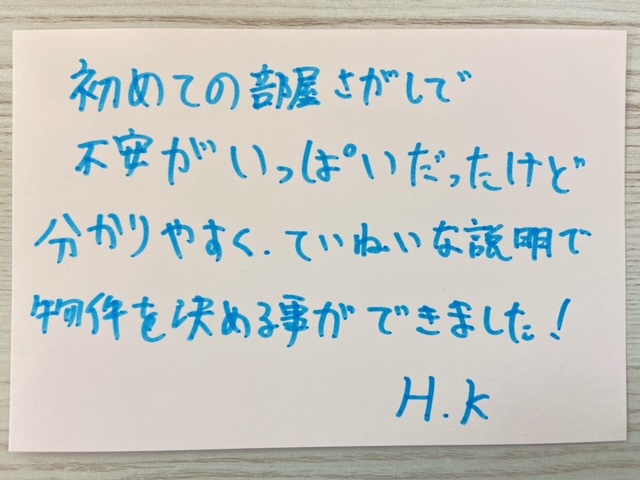 初めての部屋さがしで
不安がいっぱいだったけど
分かりやすく、ていねいな説明で
物件を決める事ができました!
H.K